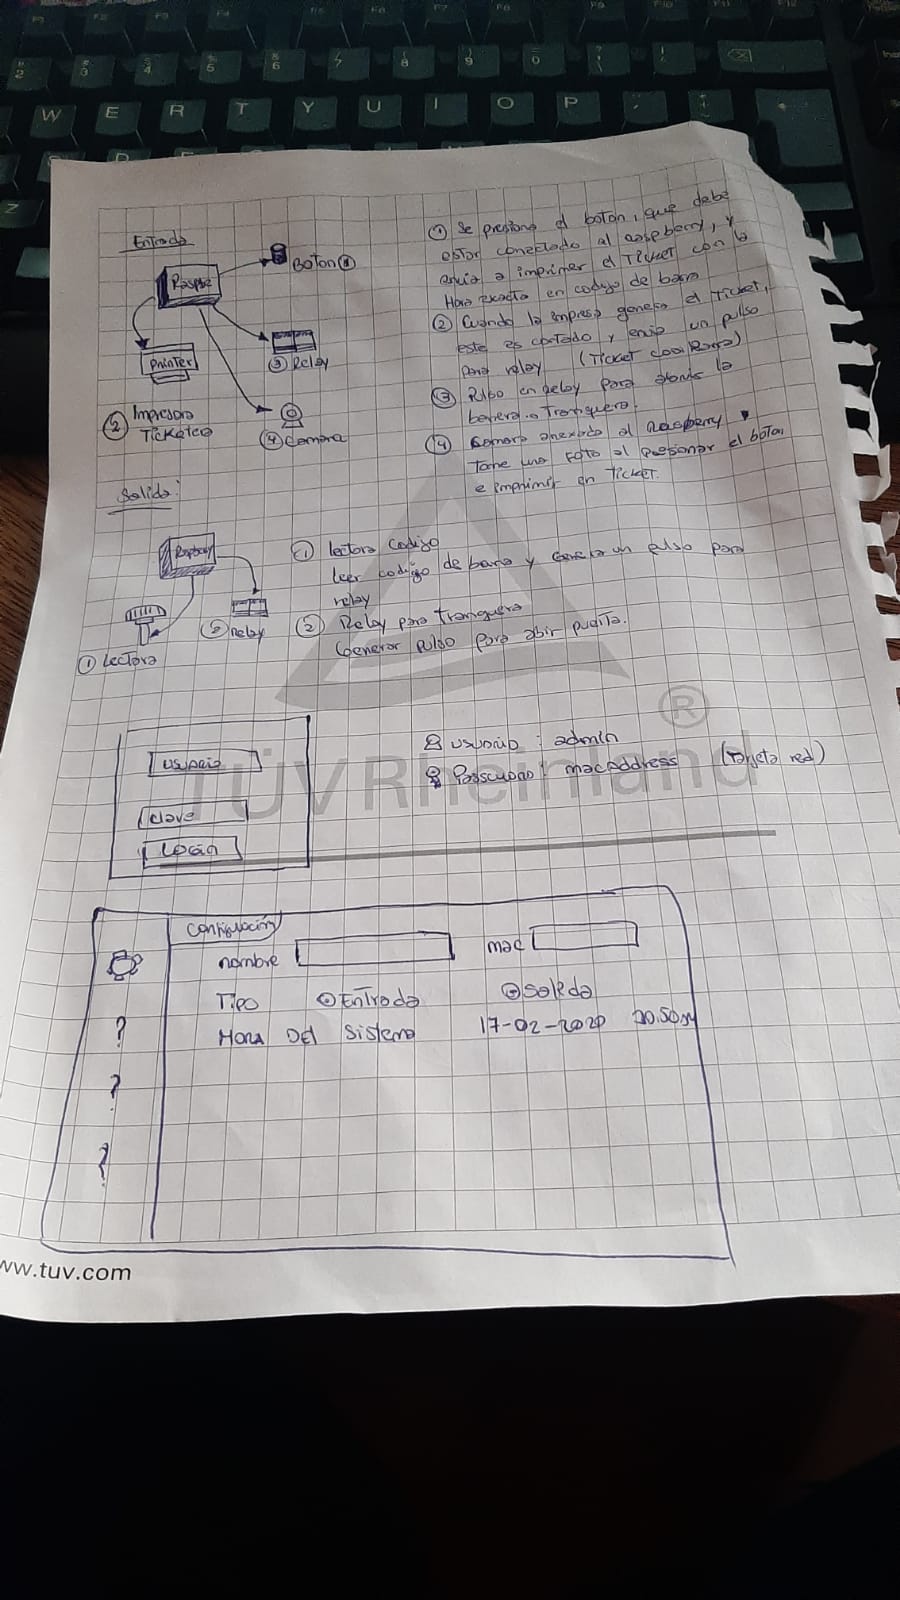 Entrada
Raspbe
Boton ①
③ Relay
printer
② Impresora
Ticketea
④ Camara
① Se presiona el boton, que debe
estar conectado al Raspberry, y
envia a imprimir el Ticket con la
Hora exacta en codigo de barra
② Cuando la impresa genera el Ticket,
este es cortado y envia un pulso
para relay (Ticket
③ Pulso en Relay para abrir la
barera o Tranquera.
④ Camara anexado al Raspberry
Tome una Foto al presionar el boton
e imprimir en Ticket.
Salida:
Raspberry
② Relay
① Lectora
① lectora Codigo
leer codigo de barra y genera un pulso para
relay
② Relay para Tranquera
Generar pulso para abir
usuario
clave
Login
usuario : admin
macAddress (Tarjeta red)
TÜVRheinland®
Configuración
nombre
mac
Tipo Entrada Salida
Hora Del Sistema 17-02-2020
?
?
?
ww.tuv.com
W E R T Y U I O P
Z